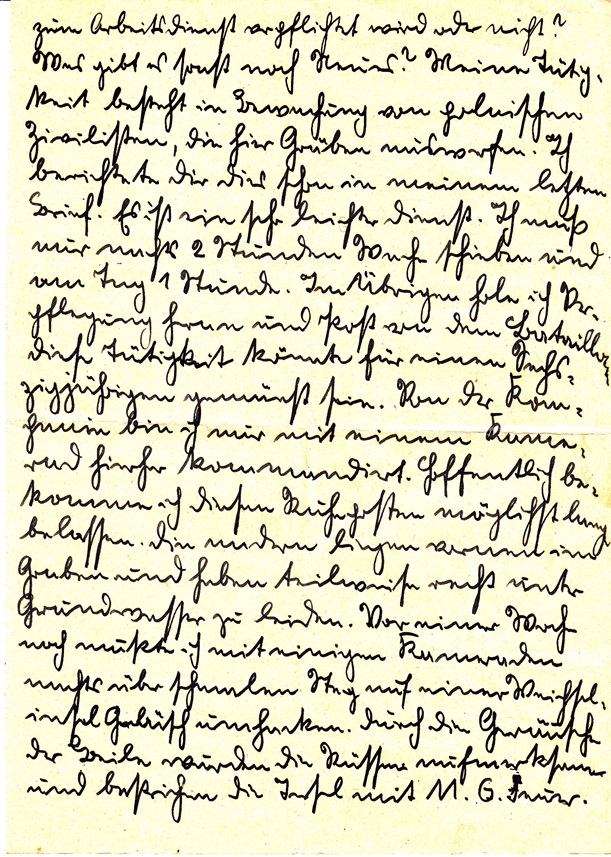 zum Arbeitsdienst verpflichtet wird oder nicht?
Was gibt es sonst noch Neues? Meine Tätig-
keit besteht in Bewachung von polnischen
Zivilisten, die hier Gräben auswerfen. Ich
berichtete dir dies schon in meinem letzten
Brief. Es ist ein sehr leichter Dienst. Ich muß
nur nachts 2 Stunden Wache schieben und
am Tag 1 Stunde. Im Übrigen hole ich Ver-
pflegung heran und Post von dem Bataillon.
diese Tätigkeit könnte für einen Sechs-
zigjährigen gemünzt sein. Von der Kom-
panie bin ich nur mit einem Kame-
rad hierher kommandirt. Hoffentlich be-
komme ich diesen Ruheposten möglichst lang
belassen. die andern liegen vornen im
Graben und haben teilweise recht unter
Grundwasser zu leiden. Vor einer Woche
noch mußte ich mit einigen Kameraden
nachts über schmalen Steg auf einer Weichsel-
insel Gebüsch umhacken. durch die Geräusche
der Beile wurden die Russen aufmerksam
und bestrichen die Insel mit M. G. Feuer.